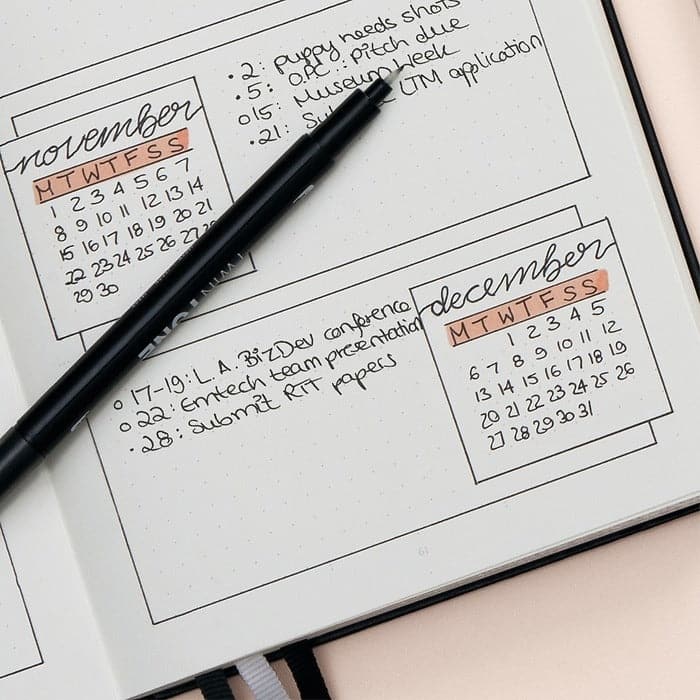 november
M T W T F S S
1 2 3 4 5 6 7
8 9 10 11 12 13 14
15 16 17 18 19 20 21
22 23 24 25 26 27
29 30
• 2: puppy needs shots
• 5: O.P.C.: pitch due
o 15: Museum Week
• 21: LTM application
december
M T W T F S S
1 2 3 4 5
6 7 8 9 10 11 12
13 14 15 16 17 18 19
20 21 22 23 24 25 26
27 28 29 30 31
o 17-19: L.A. BizDev conference
o 22: Emtech team presentation
• 28: Submit RIT papers
61